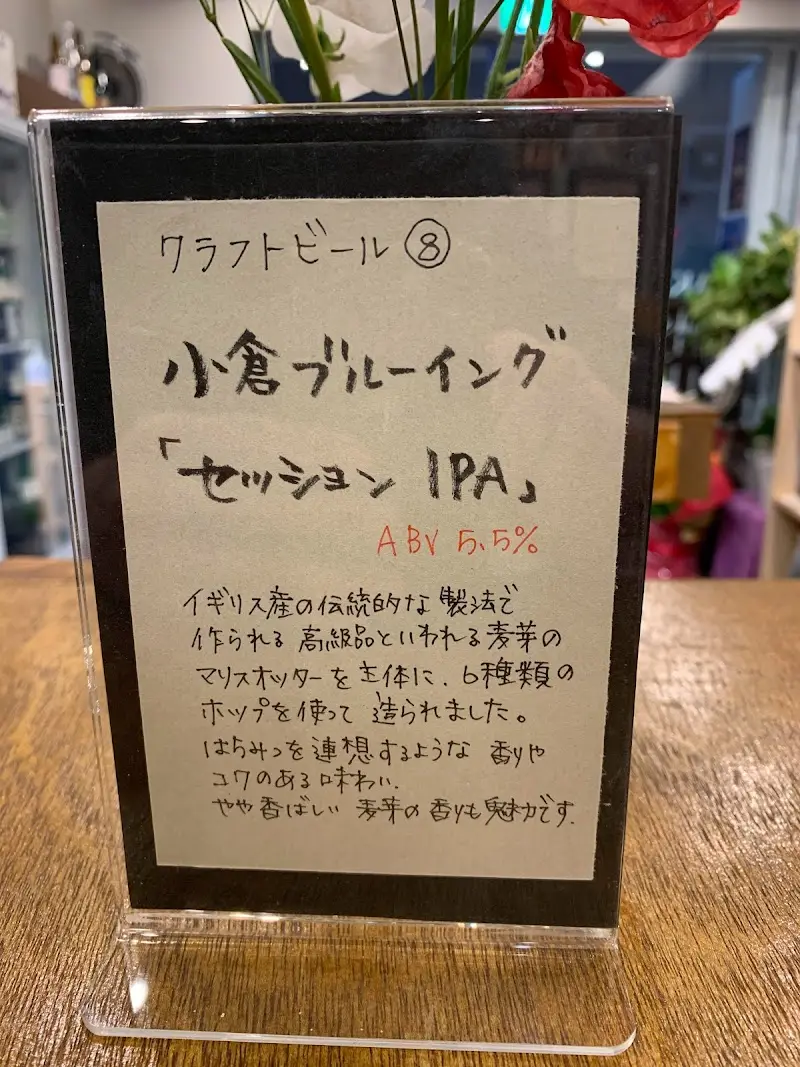 クラフトビール⑧
小倉ブルーイング
「セッション IPA」
ABV 5.5%
イギリス産の伝統的な製法で
作られる高級品といわれる麦芽の
マリスオッターを主体に、6種類の
ホップを使って造られました。
はちみつを連想するような香りや
コクのある味わい、
やや香ばしい麦芽の香りも魅力です。